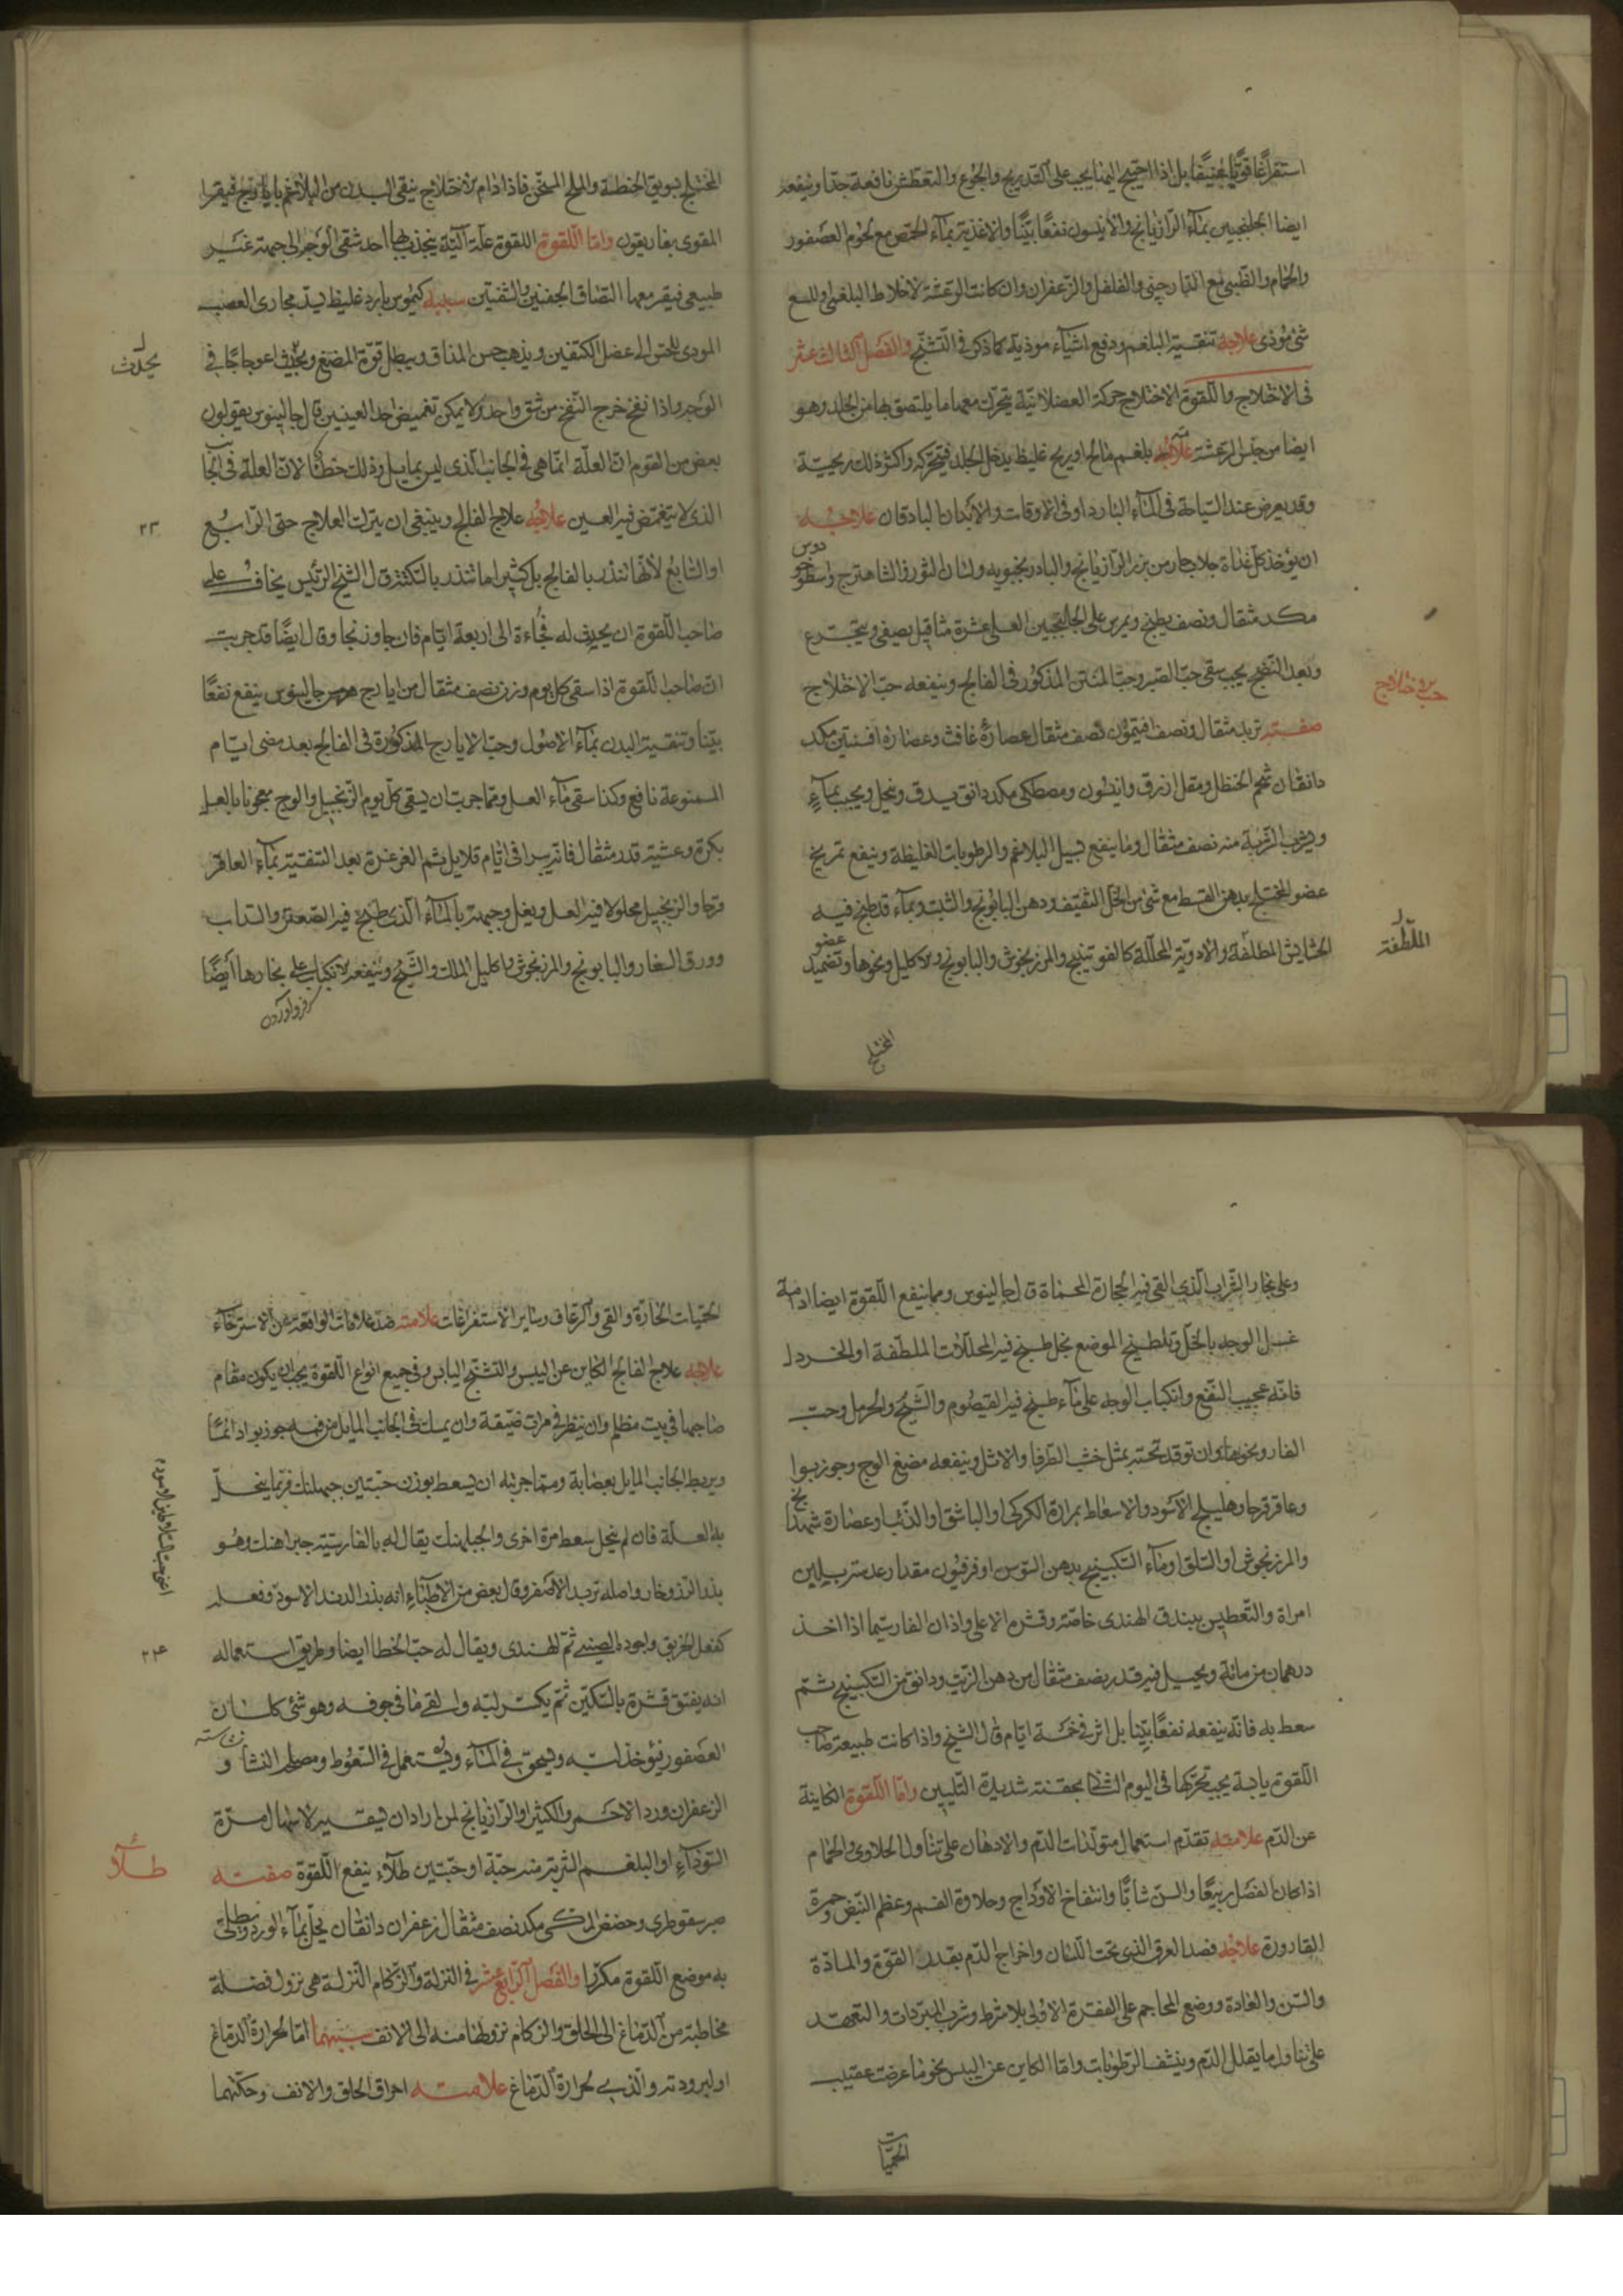 استفراغا قويا عنيفا بل اذا احتيج اليها يجب على التدريج والجوع والتعطش نافعة جدا وينفعه
ايضا الجلنجبين بماء الرازيانج والانيسون نفعا بينا والاغذية بماء الحمص مع لحوم العصفور
والحمام والظبى مع الدارچينى والفلفل والزعفران وان كانت الرعشة لاخلاط البلغمى وللسع
شئ موذى علاجه تنقية البلغم ودفع اشياء موذية كما ذكر فى التشنج والفصل الثالث عشر
فى الاختلاج واللقوة الاختلاج حركة العضلانية يتحرك معها ما يلتصق بها من الجلد وهو
ايضا من جنس الرعشة بلغم مالح او ريح غليظ يدخل الجلد فيتحركه واكثر ذلك ريحية
وقد يعرض عند السباحة فى الماء البارد او فى الاوقات والابدان الباردة ان علاجه
ان يؤخذ كل غداة جلاب حار من بزر الرازيانج والبادرنجبويه ولسان الثور والشاهترج واسطوخودوس
مكد مثقال ونصف يطبخ ويمرس على الجلنجبين العسلى عشرة مثاقيل يصفى ويتجرع
وبعد النضج يجب سقى حب الصبر وحب المنتن المذكور فى الفالج وينفعه حب الاختلاج
حب اختلاج
صفته تربد مثقال ونصف افتيمون نصف مثقال عصارة غافث وعصارة افسنتين مكد
دانقان شحم الحنظل ومقل ازرق وانيسون ومصطكى مكد دانق يدق وينخل ويجب بماء
ويشرب الشربة منه نصف مثقال وما ينفع تسييل البلاغم والرطوبات الغليظة وينفع تمريخ
عضو المختلج بدهن القسط مع شئ من الخل الثقيف ودهن البابونج والشبت وبماء قد طبخ فيه
الحشايش المطلفة والادوية المحللة كالفوتنيج والمرزنجوش والبابونج والاكليل ونحوها وتضميد عضو
الملطفة
المختلج
المختلج بسويق الحنطة والملح المسخن فاذا دام الاختلاج ينقى البدن من البلاغم بايارج فيقرا
المقوى بغاريقون واما اللقوة اللقوة علة آلية ينجذب لها احد شقى الوجه الى جهة غير
طبيعى فيقر معها التصاق الجفنين والشفتين سببه كيموس بارد غليظ يسد مجارى العصب
المودى للحس الى عضل الكتفين ويذهب حس المذاق ويبطل قوة المضغ ويحدث اعوجاجا فى
يحدث
الوجه واذا نفخ خرج النفخ من شق واحد ولا يمكن تغميض احد العينين قال جالينوس يقولون
بعض من القوم ان العلة انما هى فى الجانب الذى ليس بمايل وذلك خطأ لان العلة فى الجانب
الذى لا يتغمض فيه العين علاجه علاج الفالج وينبغى ان يترك العلاج حتى الرابع
٢٣
او السابع لانها تنذر بالفالج بل كثيرا ما تنذر بالسكتة قال الشيخ الرئيس يخاف على
صاحب اللقوة ان يحدث له فجاءة الى اربعة ايام فان جاوز نجا وقال ايضا قد جربت
ان صاحب اللقوة اذا سقى كل يوم وزن نصف مثقال من ايارج هرمس جالينوس ينفع نفعا
بينا وتنقية البدن بماء الاصول وحب الايارج المذكورة فى الفالج بعد مضى ايام
الممنوعة نافع وكذا سقى ماء العسل ومما جربت ان يسقى كل يوم الزنجبيل والوج معجونا بالعسل
بكرة وعشية قدر مثقال فانه يبرا فى ايام قلايل ثم الغرغرة بعد التنقية بماء العاقر
قرحا والزنجبيل محلولا فيه العسل ويغسل وجهه بالماء الذى طبخ فيه الصعتر والسداب
وورق الغار والبابونج والمرزنجوش واكليل الملك والشيح وينفعه الانكباب على بخارها ايضا
وعلى بخار الشراب الذى القى فيه الحجارة المحماة قال جالينوس ومما ينفع اللقوة ايضا ادامة
غسل الوجه بالخل وتلطيخ الموضع بخل طبخ فيه المحللات الملطفة او الخردل
فانه عجيب النفع وانكباب الوجه على ماء طبخ فيه القيصوم والشيح والحرمل وحب
الغار ونحوها وان توقد تحته بمثل خشب الطرفا والاثل وينفعه مضغ الوج وجوز بوا
وعاقرقرحا وهليلج الاسود والاسعاط بمرارة الكركى او الباشق او الذئب او عصارة شهدانج
والمرزنجوش او السلق او ماء السكبينج بدهن السوسن او فرفيون مقدار عدسة بلبن
امراة والتعطيس ببندق الهندى خاصة وقشره الاعلى واذان الفار سيما اذا اخذ
درهمان من مائه ويحيل فيه قدر نصف مثقال من دهن الزيت ودانق من السكبينج ثم
سعط به فانه ينفعه نفعا بينا بل اثر فى خمسة ايام قال الشيخ واذا كانت طبيعة صاحب
اللقوة يابسة يجب تحركها فى اليوم الثانى بحقنة شديدة التليين واما اللقوة الكاينة
عن الدم علامته تقدم استعمال متولدات الدم والادهان على تناول الحلاوى والحمام
اذا كان الفصل ربيعا والسن شابا وانتفاخ الاوداج وحلاوة الفم وعظم النبض وحمرة
القارورة علاجه فصد العرق الذى تحت اللسان واخراج الدم بقدر القوة والمادة
والسن والعادة ووضع المحاجم على الفقرة الاولى بلا شرط وشرب المبردات والتعهد
على تناول ما يقلل الدم وينشف الرطوبات واما الكاين عن اليبس نحو ما عرضت عقيب
الحميات
الحميات الحارة والقى والرعاف وساير الاستفراغات علامته ضد علامات الواقعة عن الاسترخاء
علاجه علاج الفالج الكاين عن اليبس والتشنج اليابس وفى جميع انواع اللقوة يجب ان يكون مقام
صاحبها فى بيت مظلم وان ينظر فى مراة ضيقة وان يمسك فى الجانب المايل من فمه جوز بوا دائما
ويربط الجانب المايل بعصابة ومما جربته ان يسعط بوزن حبتين جبهلنك فربما ينحل
به العلة فان لم ينحل سعط مرة اخرى والجبلهنك يقال له بالفارسية جبراهنك وهو
بذر الزوفار واصله تربد الاصفر وقال بعض من الاطباء انه بذر الدند الاسود وفعله
كفعل الخربق واجوده الصينى ثم الهندى ويقال له حب الخطا ايضا وطريق استعماله
٢٤
انه يفتق قشره بالسكين ثم يكسر لبه والقى ما فى جوفه وهو شئ كلسان
العصفور فيؤخذ لبه ويسحق فى الماء ويستعمل فى السعوط ومصلحه النشا و
الزعفران وورد الاحمر والكثيرا والرازيانج لمن اراد ان يسقيه لاسهال مرة
السوداء او البلغم الشربة منه حبة او حبتين طلاء ينفع اللقوة صفته
طلاء
صبر سقوطرى وحضض المكى مكد نصف مثقال زعفران دانقان يحل بماء الورد ويطلى
به موضع اللقوة مكررا والفصل الرابع عشر فى النزلة والزكام النزلة هى نزول فضلة
مخاطية من الدماغ الى الحلق والزكام نزولها منه الى الانف سببهما اما لحرارة الدماغ
او لبرودته والذى لحرارة الدماغ علامته احراق الحلق والانف وحكتهما